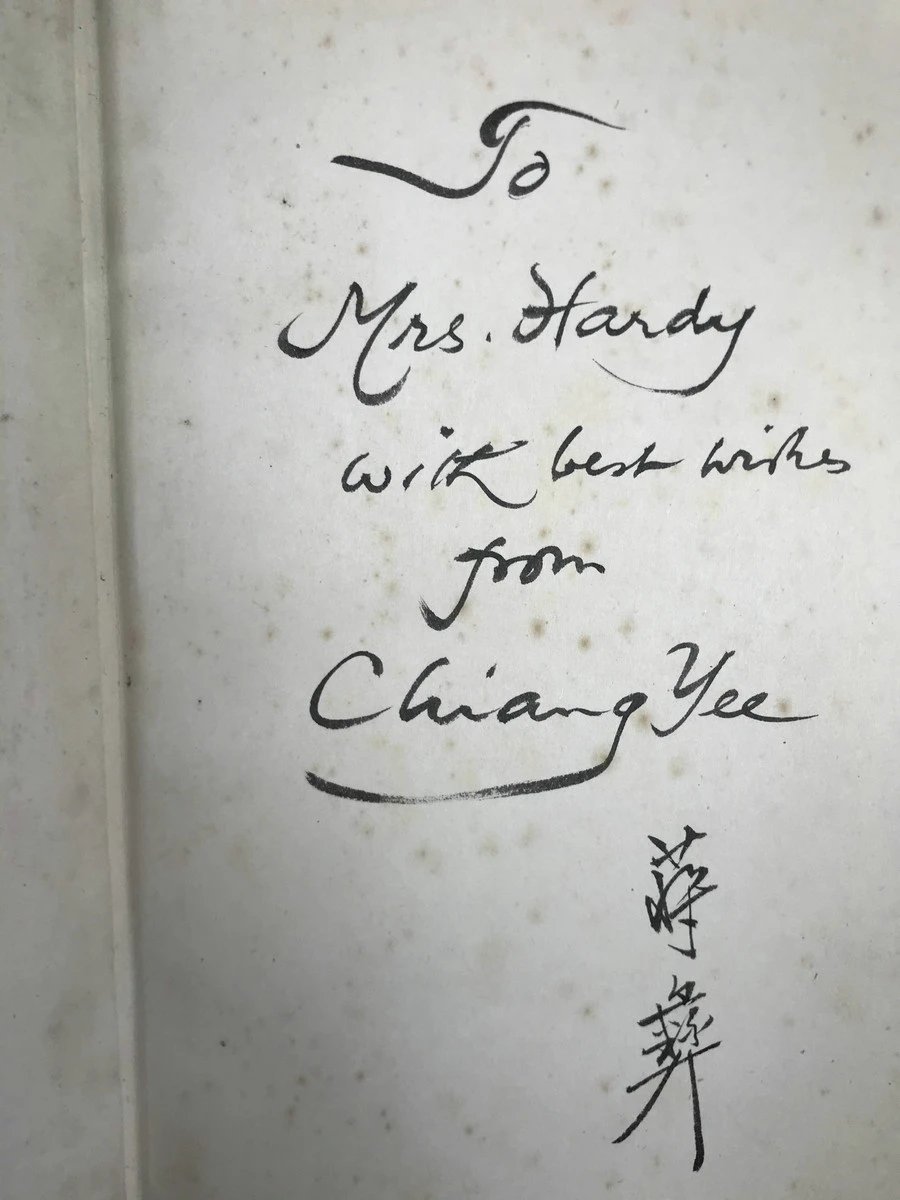 To
Mrs. Hardy
with best wishes
from
Chiang Yee
蔣彝